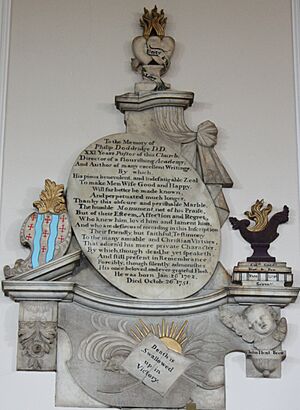 To the Memory of
Philip Doddridge D.D.
XXI Years Pastor of this Church,
Director of a flourishing Academy,
And Author of many excellent Writings,
By which,
His pious benevolent, and indefatigable Zeal
To make Men Wise Good and Happy,
Will far better be made known,
And perpetuated much longer,
Than by this obscure and perishable Marble,
The humble Monument, not of his Praise,
But of their Esteem, Affection and Regret,
Who knew him, lov'd him and lament him,
And who are desirous of recording in this Inscription
Their friendly but faithful Testimony
To the many amiable and Christian Virtues,
That adorn'd his more private Character
By which, though dead, he yet speaketh,
And still present in Remembrance,
Forcibly, though silently, admonishes
His once beloved and ever-grateful Flock.
He was born Jun. 26 1702.
Died Octob. 26 1751.
Death is
Swallowed
up in
Victory